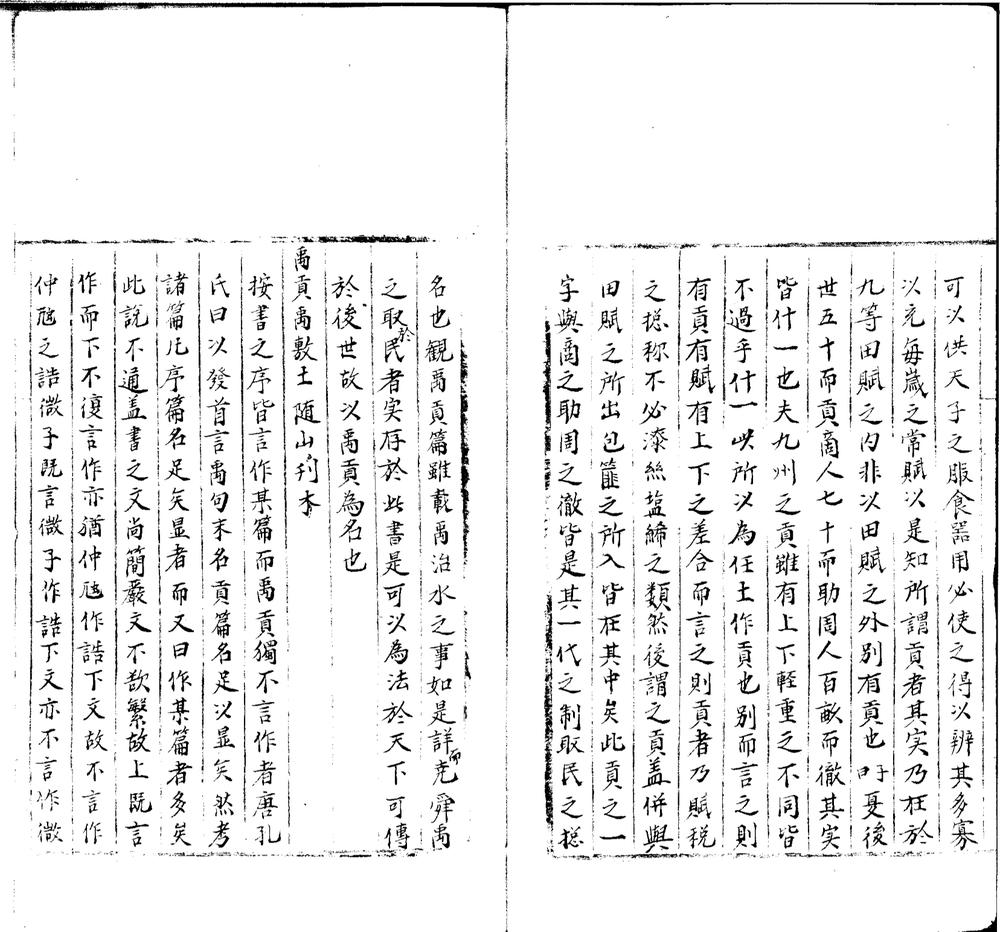 可以供天子之服食器用必使之得以辨其多寡
以充每歲之常賦以是知所謂貢者其实乃在於
九等田賦之内非以田賦之外別有貢也旴夏後
世五十而貢啇人七十而助周人百畝而徹其实
皆什一也夫九州之貢雖有上下輕重之不同皆
不過乎什一此所以為任土作貢也別而言之則
有貢有賦有上下之差合而言之則貢者乃賦稅
之捴称不必漆絲塩絺之類然後謂之貢盖併與
田賦之所出包篚之所入皆在其中矣此貢之一
字與啇之助周之徹皆是其一代之制取民之捴
名也觀禹貢篇雖載禹治水之事如是詳而堯舜禹
之取於民者实存於此書是可以為法於天下可傳
於後世故以禹貢為名也
禹貢禹敷土随山刋木
按書之序皆言作某篇而禹貢獨不言作者唐孔
氏曰以發首言禹句末名貢篇名足以显矣然考
諸篇凡序篇名足矣显者而又曰作某篇者多矣
此說不通盖書之文尚簡嚴文不欲繁故上既言
作而下不復言作亦猶仲虺作誥下文故不言作
仲虺之誥微子既言微子作誥下文亦不言作微